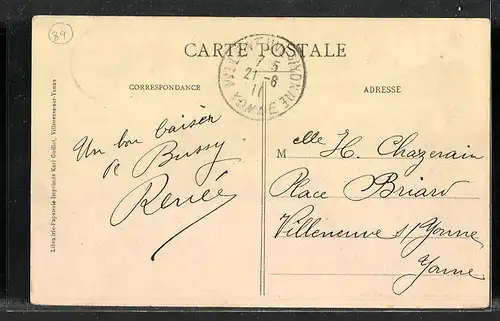 89
CARTE POSTALE
CORRESPONDANCE
ADRESSE
7 5
21-8
11
YONNE
Un bon baiser
de Bussy
Renée
Melle H. Chazerain
Place Briard
Villeneuve s/ Yonne
Yonne
Librairie-Papeterie-Imprimerie Karl Guillot, Villeneuve-sur-Yonne